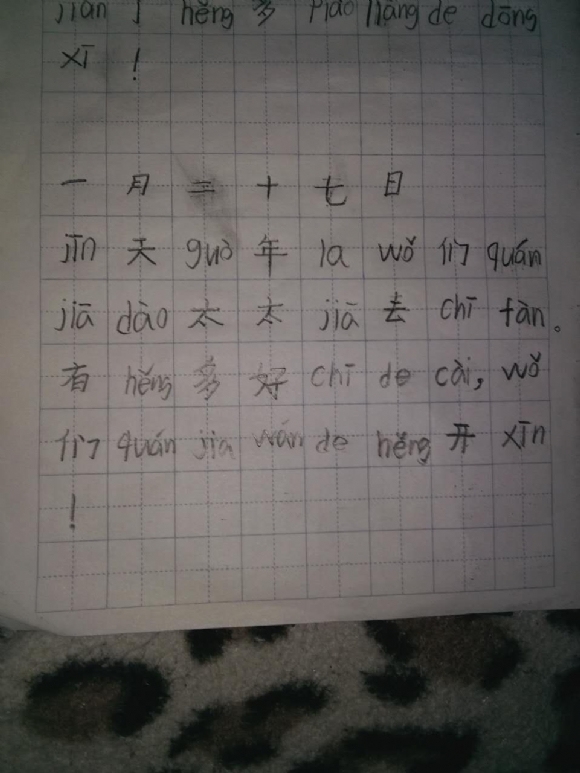 jiàn 了 hěng 多 piào liàng de dōng
xī !
一 月 二 十 七 日
jīn 天 guò 年 la wǒ 们 quán
jiā dào 太 太 jiā 去 chī fàn。
有 hěng 多 好 chī de cài, wǒ
们 quán jiā wán de hěng 开 xīn
!